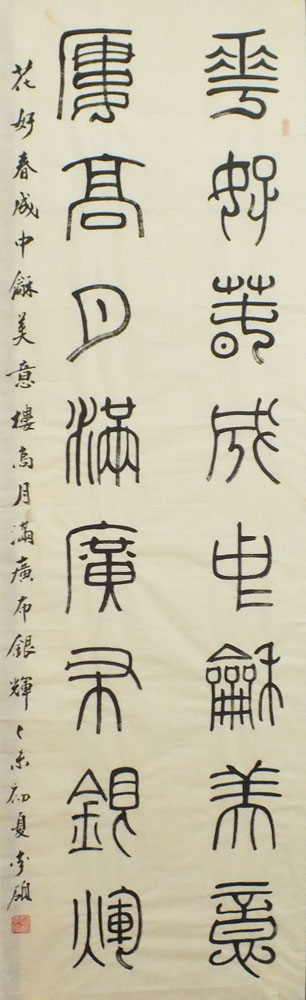 華好萅成中龢美意
廔高月滿廣布銀煇
花好春成中龢美意樓高月滿廣布銀輝乙未初夏